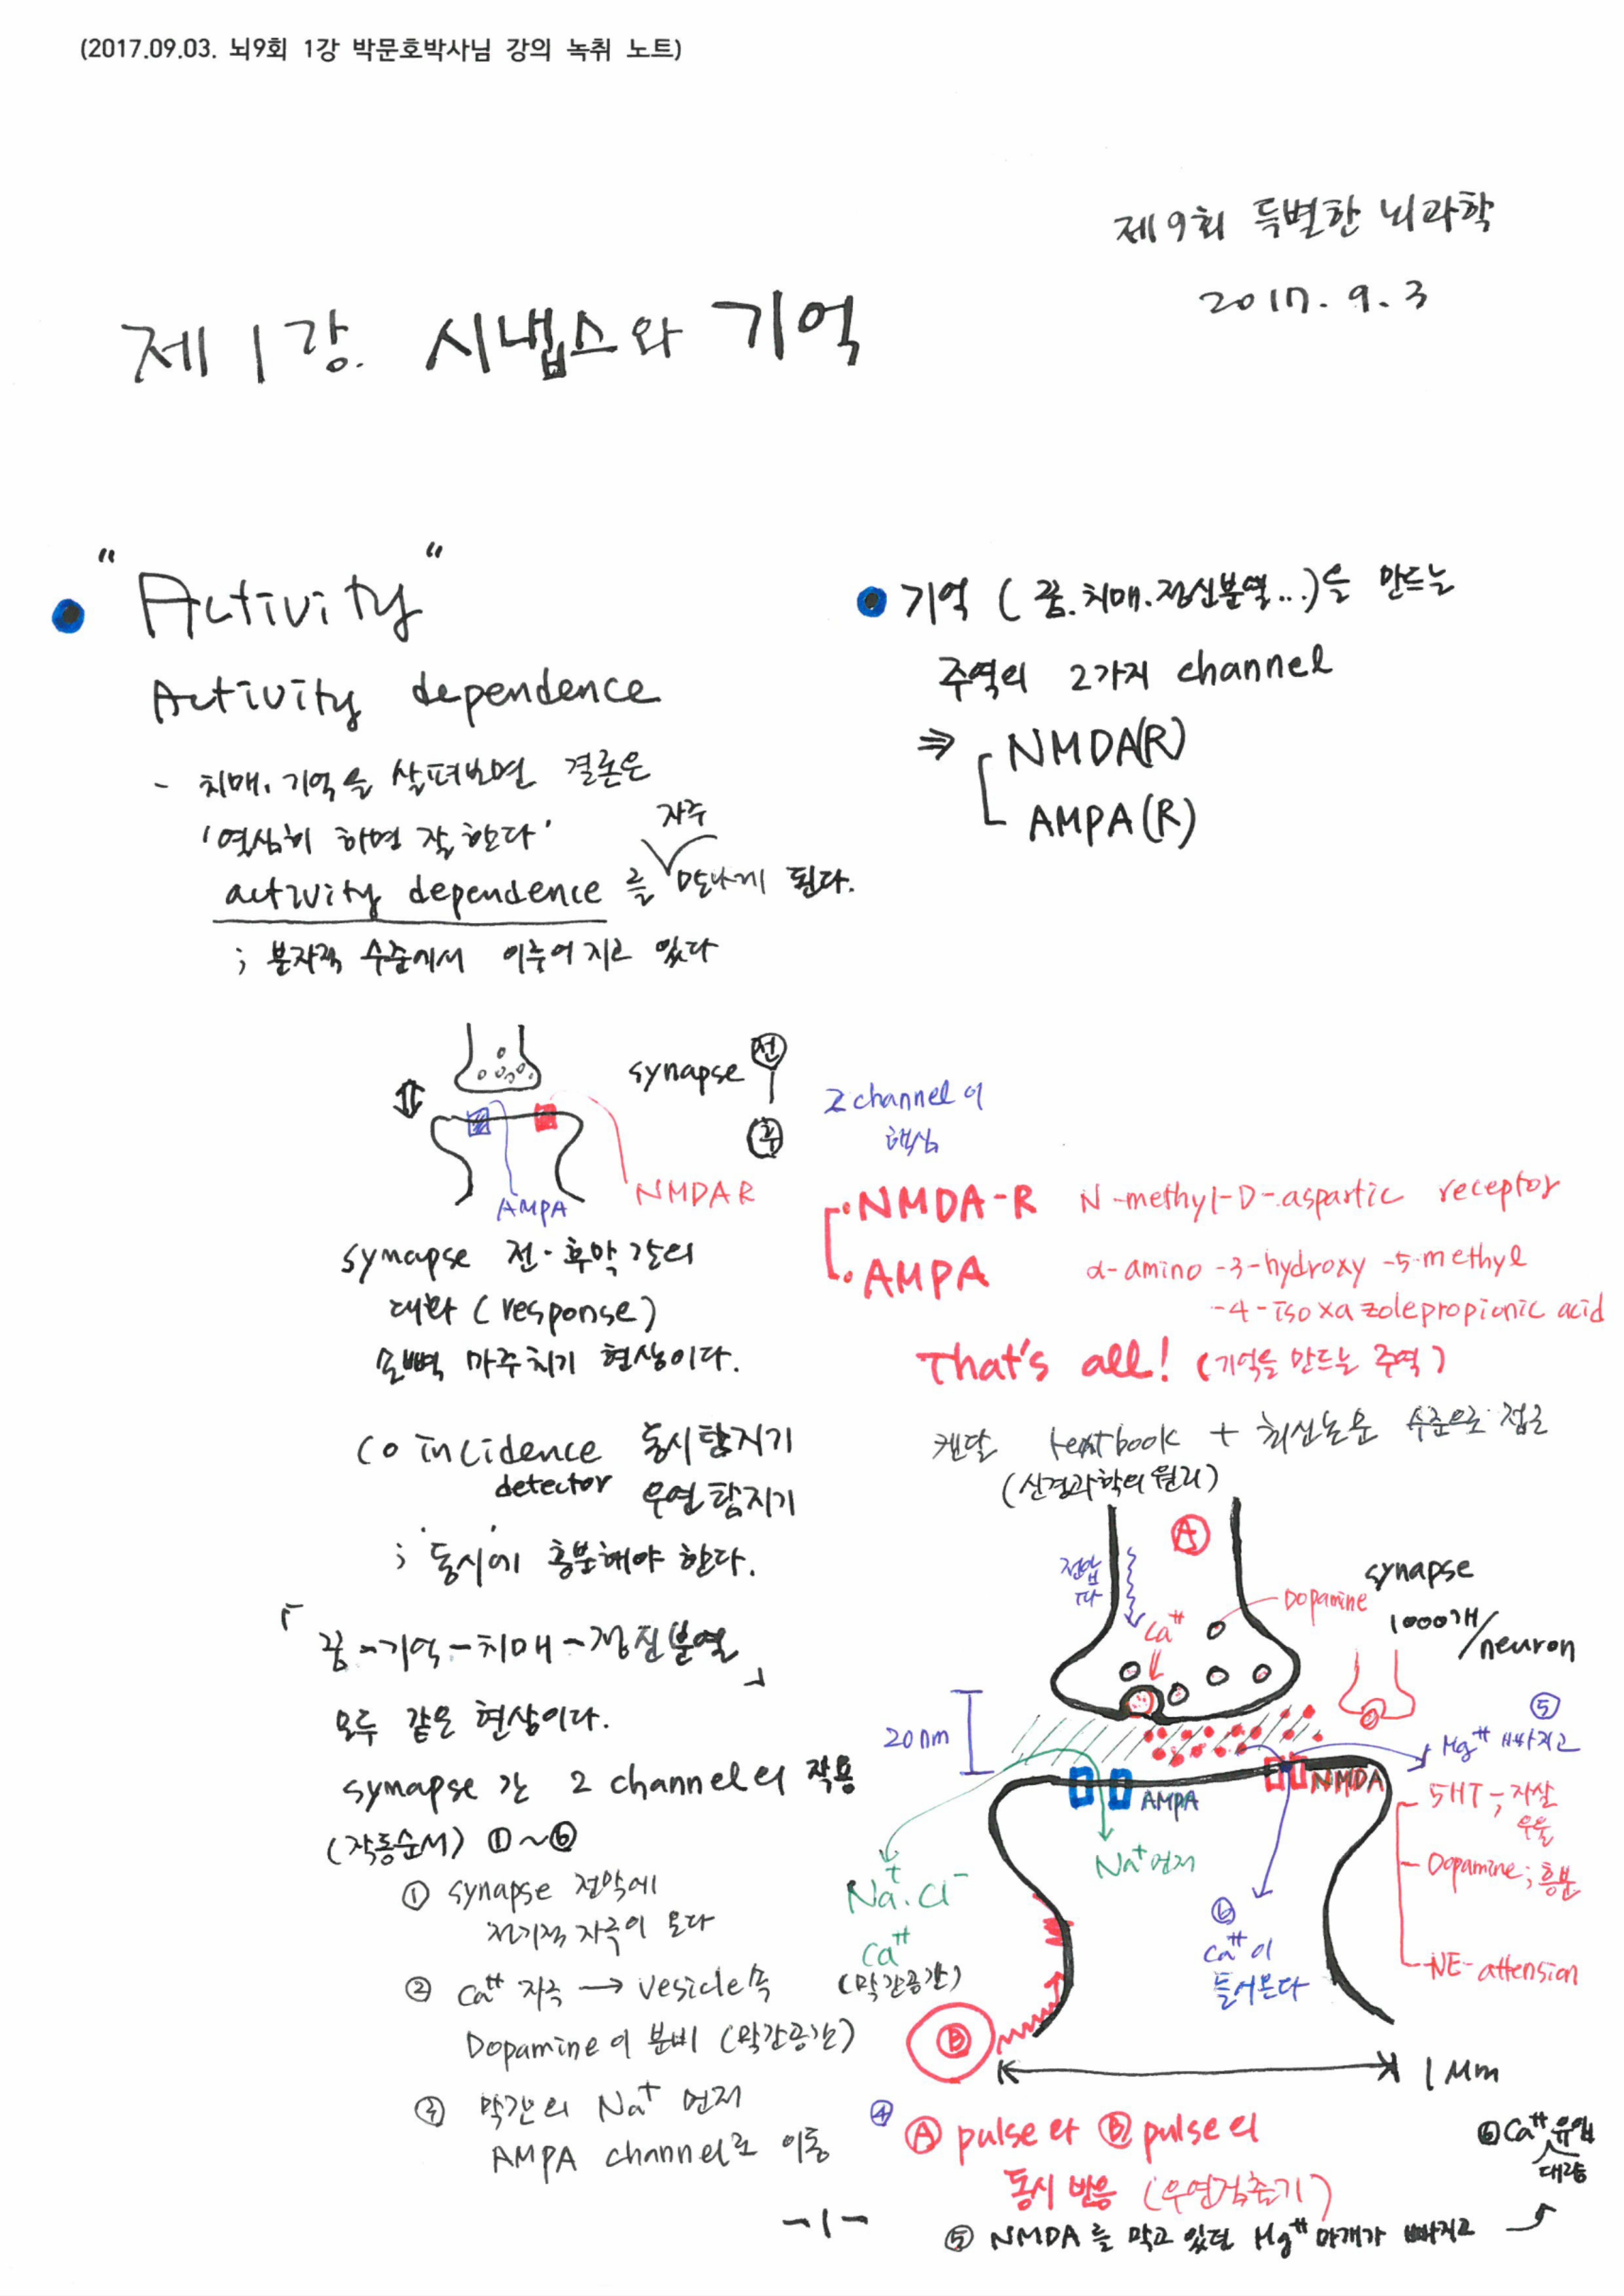 (2017.09.03. 뇌9회 1강 박문호박사님 강의 녹취 노트)
제9회 특별한 뇌과학
2017. 9. 3
제1강. 시냅스와 기억
"Activity"
Activity dependence
- 치매, 기억을 살펴보면 결론은
'열심히 하면 잘 한다'
자주
activity dependence 를 만나게 된다.
; 분자적 수준에서 이루어지고 있다
기억 (꿈.치매.정신분열...)을 만드는
주역의 2가지 channel
⇒ NMDA(R)
AMPA(R)
synapse 전
후
AMPA
NMDAR
synapse 전·후막 간의
대화 (response)
손뼉 마주치기 현상이다.
Coincidence 동시탐지기
detector 우연탐지기
; '동시'에 흥분해야 한다.
「꿈-기억-치매-정신분열」
모두 같은 현상이다.
synapse 간 2 channel의 작용
(작동순서) ①~⑥
① synapse 전막에
전기적 자극이 온다
② Ca⁺⁺ 자극 → vesicle속
Dopamine이 분비 (막간공간)
③ 막간의 Na⁺ 먼저
AMPA channel로 이동
2 channel이
핵심
·NMDA-R N-methyl-D-aspartic receptor
·AMPA α-amino-3-hydroxy-5-methyl
-4-isoxazolepropionic acid
That's all! (기억을 만드는 주역)
켄달 textbook + 최신논문 수준으로 접근
(신경과학의 원리)
Ⓐ
전압
Ca⁺⁺
Dopamine
synapse
1000개/neuron
20nm
⑤
Mg⁺⁺ 빠지고
AMPA
NMDA
5HT-; 자살
우울
Dopamine; 흥분
NE-attension
Na⁺ 먼저
Na⁺.Cl⁻
Ca⁺⁺
(막간공간)
⑥
Ca⁺⁺이
들어온다
Ⓑ
1μm
④ Ⓐ pulse와 Ⓑ pulse의
동시 반응 (우연검출기)
⑤ NMDA를 막고 있던 Mg⁺⁺ 마개가 빠지고
⑥ Ca⁺⁺ 유입
대량
-1-